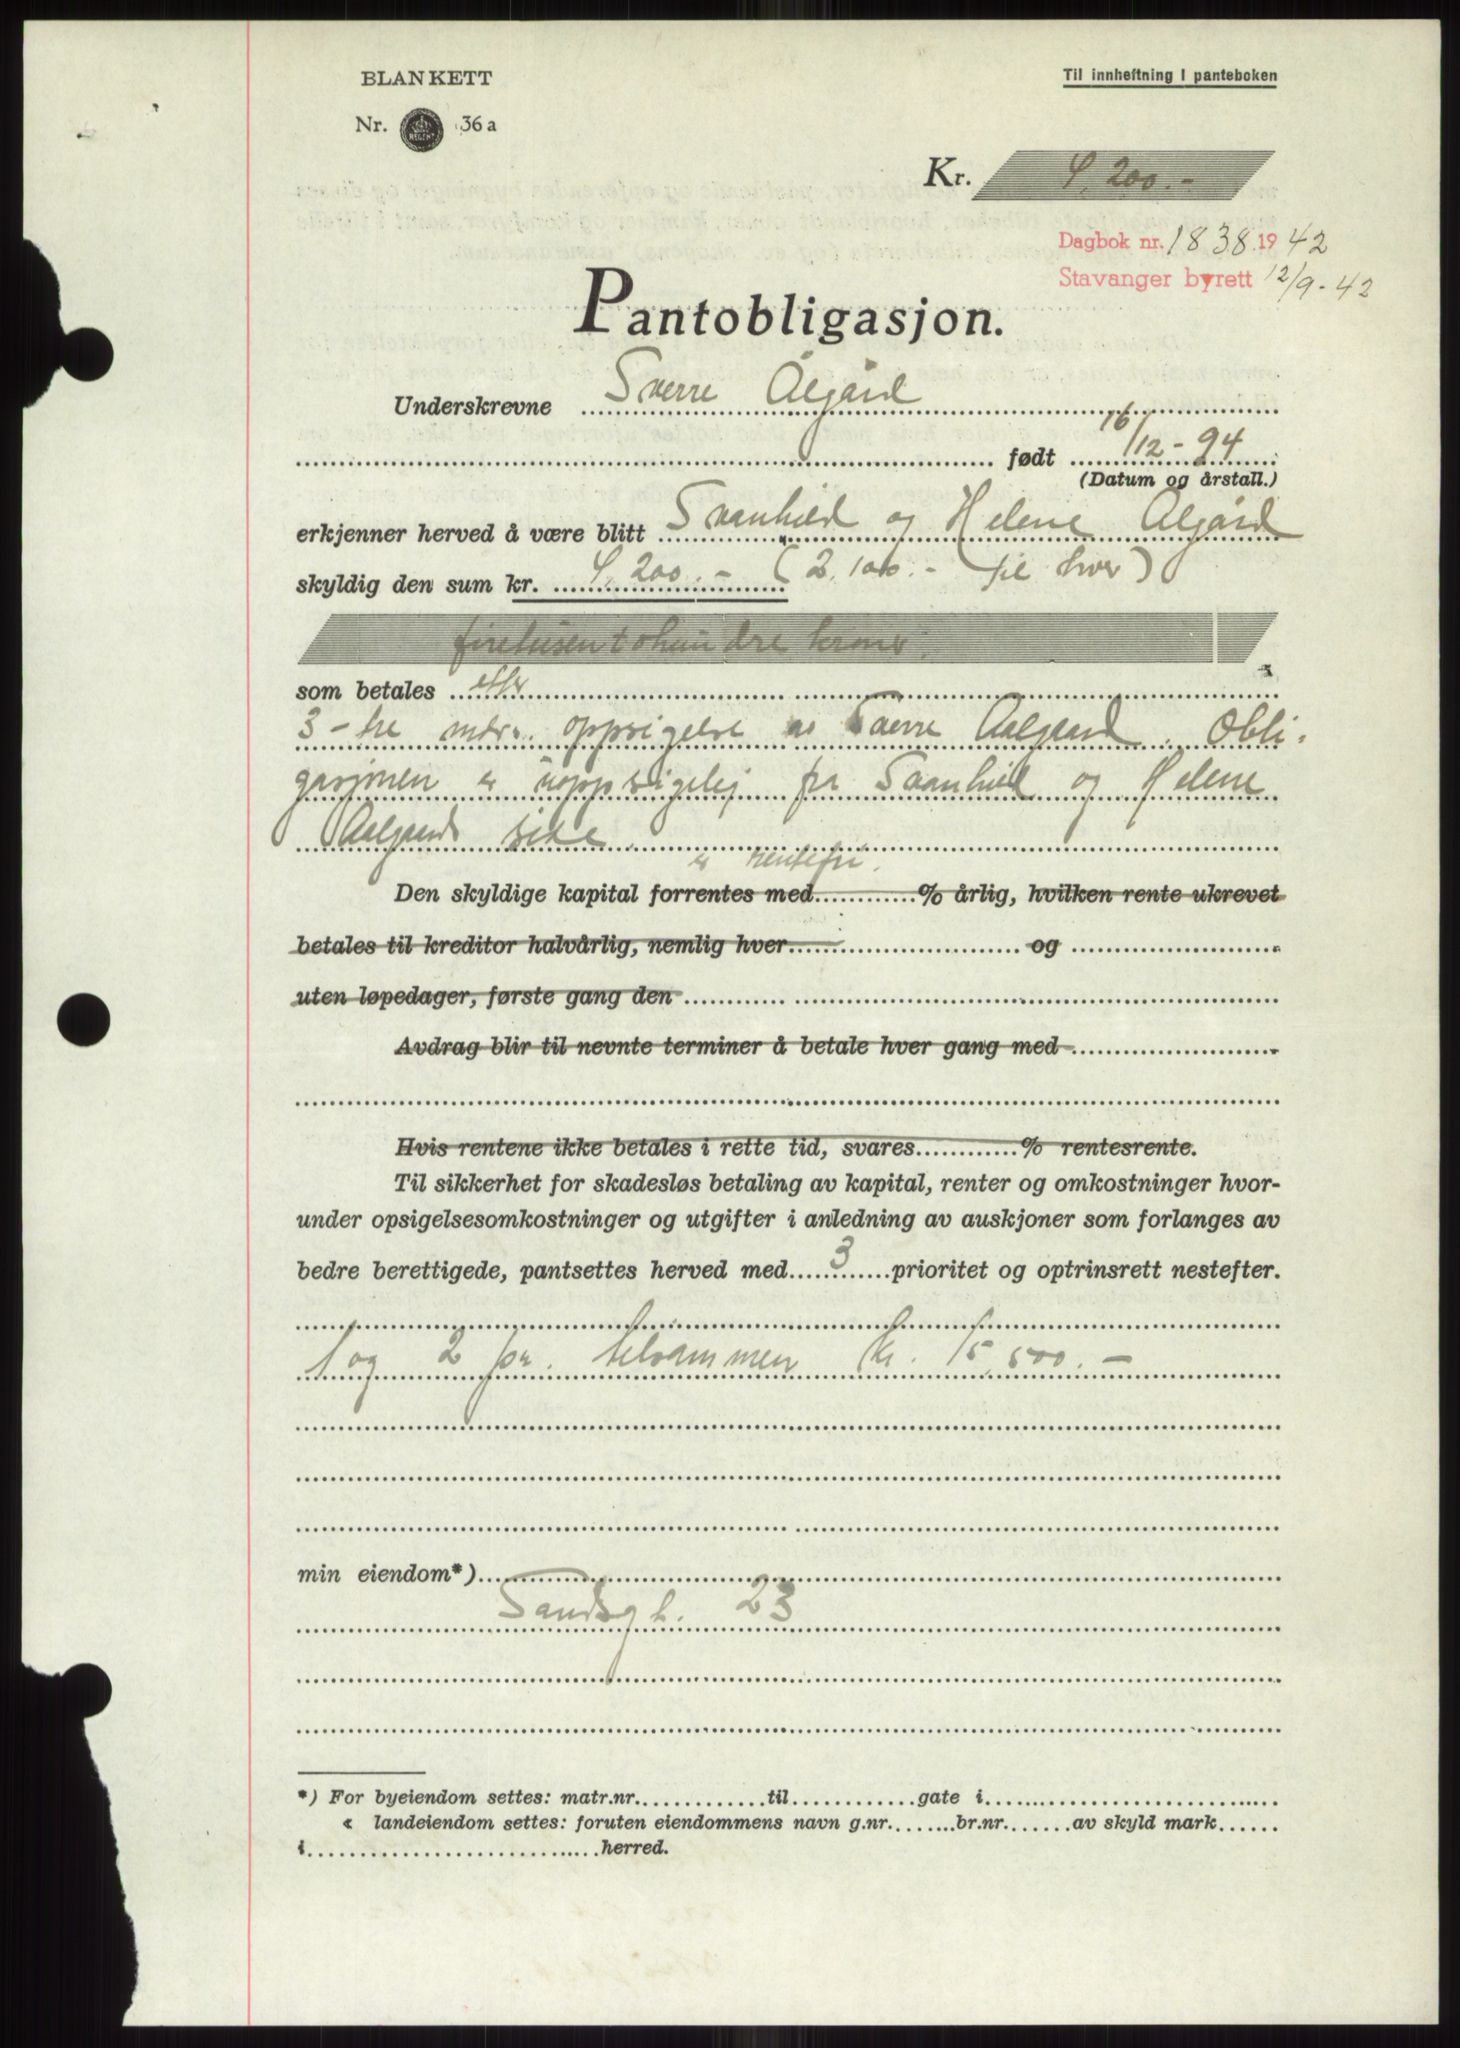 BLANKETT
Til innheftning i panteboken
Nr. 36 a
Kr. 4,200.-
Dagbok nr. 1838 1942
Stavanger byrett 12/9-42
Pantobligasjon.
Underskrevne Sverre Ålgård
født 16/12-94
(Datum og årstall.)
erkjenner herved å være blitt Svanhild og Helene Ålgård
skyldig den sum kr. 4,200.- (2,100.- til hver)
firetusentohundre kroner.
som betales efter
3-tre mdrs. oppsigelse av Sverre Aalgaard. Obli-
gasjonen er uoppsigelig fra Svanhild og Helene
Aalgaards side.
er rentefri.
Den skyldige kapital forrentes med............% årlig, hvilken rente ukrevet
betales til kreditor halvårlig, nemlig hver............ og ............
uten løpedager, første gang den ............
Avdrag blir til nevnte terminer å betale hver gang med ............
Hvis rentene ikke betales i rette tid, svares............% rentesrente.
Til sikkerhet for skadesløs betaling av kapital, renter og omkostninger hvor-
under opsigelsesomkostninger og utgifter i anledning av auskjoner som forlanges av
bedre berettigede, pantsettes herved med......3......prioritet og optrinsrett nestefter.
1 og 2 pr. tilsammen kr. 15,500.-
min eiendom*)............
Sandsgt. 23
*) For byeiendom settes: matr.nr.............til............gate i............
« landeiendom settes: foruten eiendommens navn g.nr........br.nr.......av skyld mark......
i............herred.